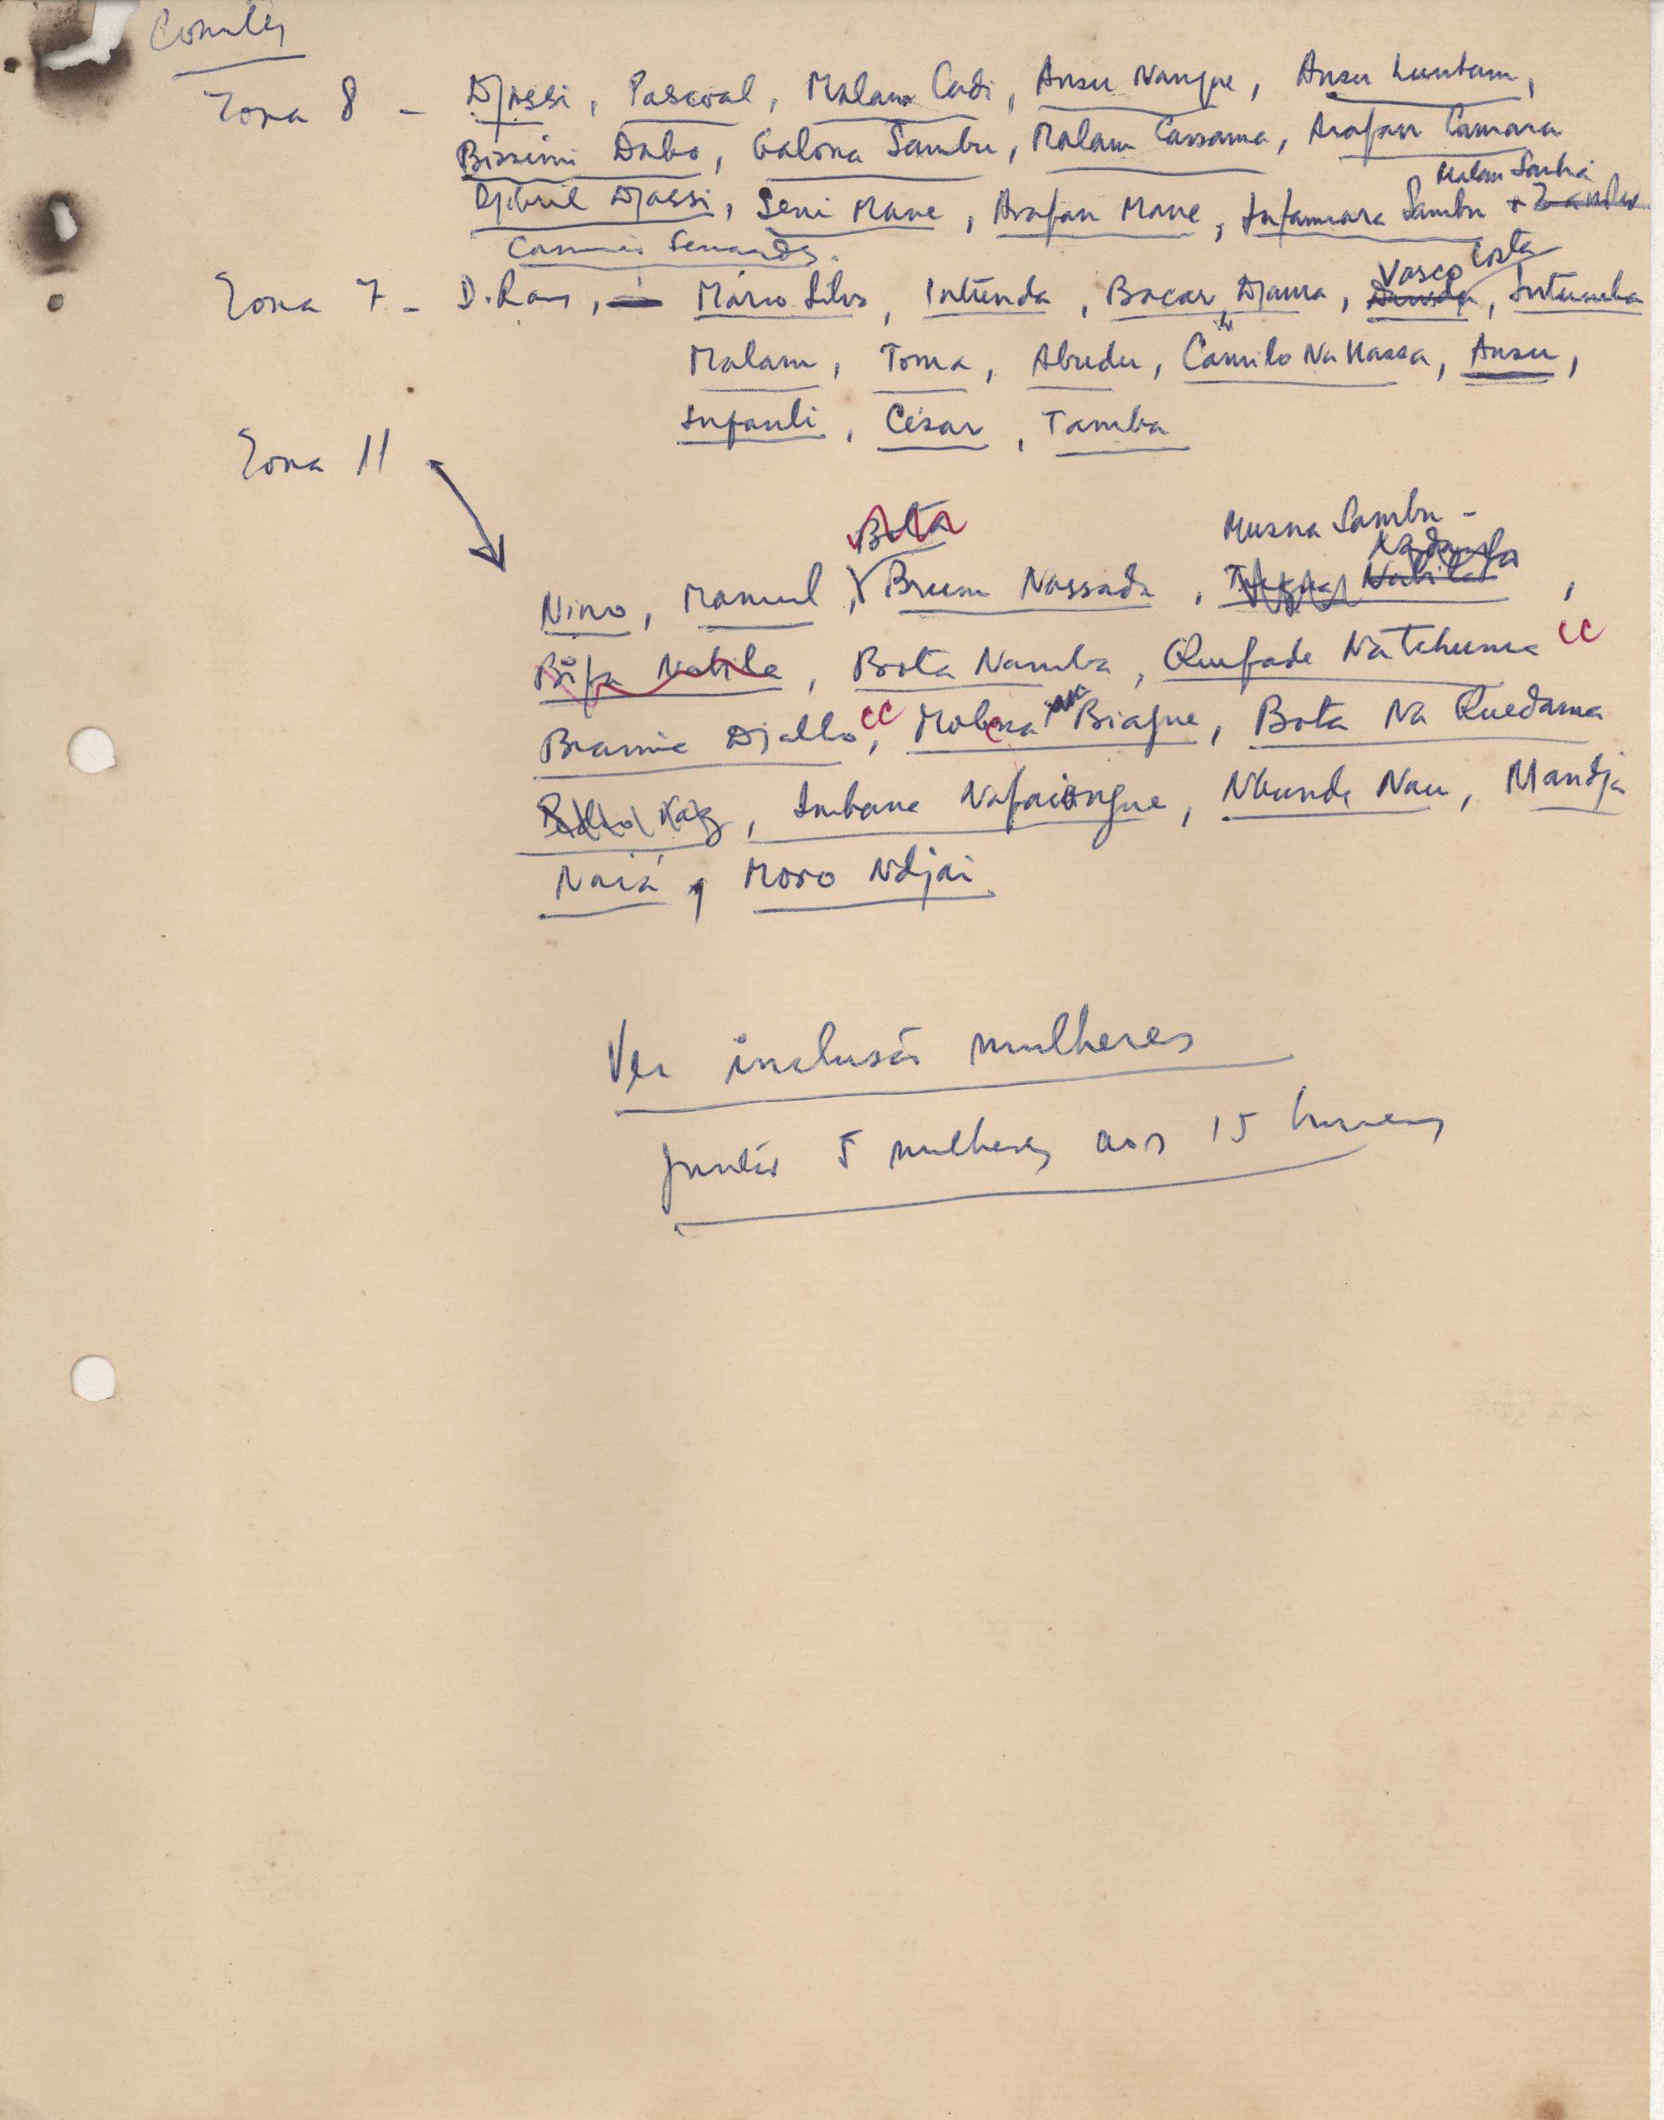 Comités
Zona 8 - Djassi, Pascoal, Malam Cadi, Ansu Nangue, Ansu
Bissimi Dabo, Galona Sambu, Malam Cassama, Arafan Camara
Malam Sonha
Djibril Djassi, Seni Mane, Arafan Mane, Infamara Sambu +
Vasco Costa
Zona 7 - D. Ram, Mário Silva, Intunda, Bacar Djama, Intumba
Malam, Toma, Abudu, Camilo Na Hassa, Ansu,
Infanli, César, Tamba
Zona 11
Bota Musna Sambu -
Nino, Manuel, Brum Nassada,
Bifa Nabile, Bota Namba, Quifade Natchuma CC
Braima Djallo CC, Molena Biague, Bota Na Quedama
Imbana Nafaiongue, Nbunde Nau, Mandja
Naiá, Moro Ndjai
Ver inclusão mulheres
Juntar 5 mulheres aos 15 homens